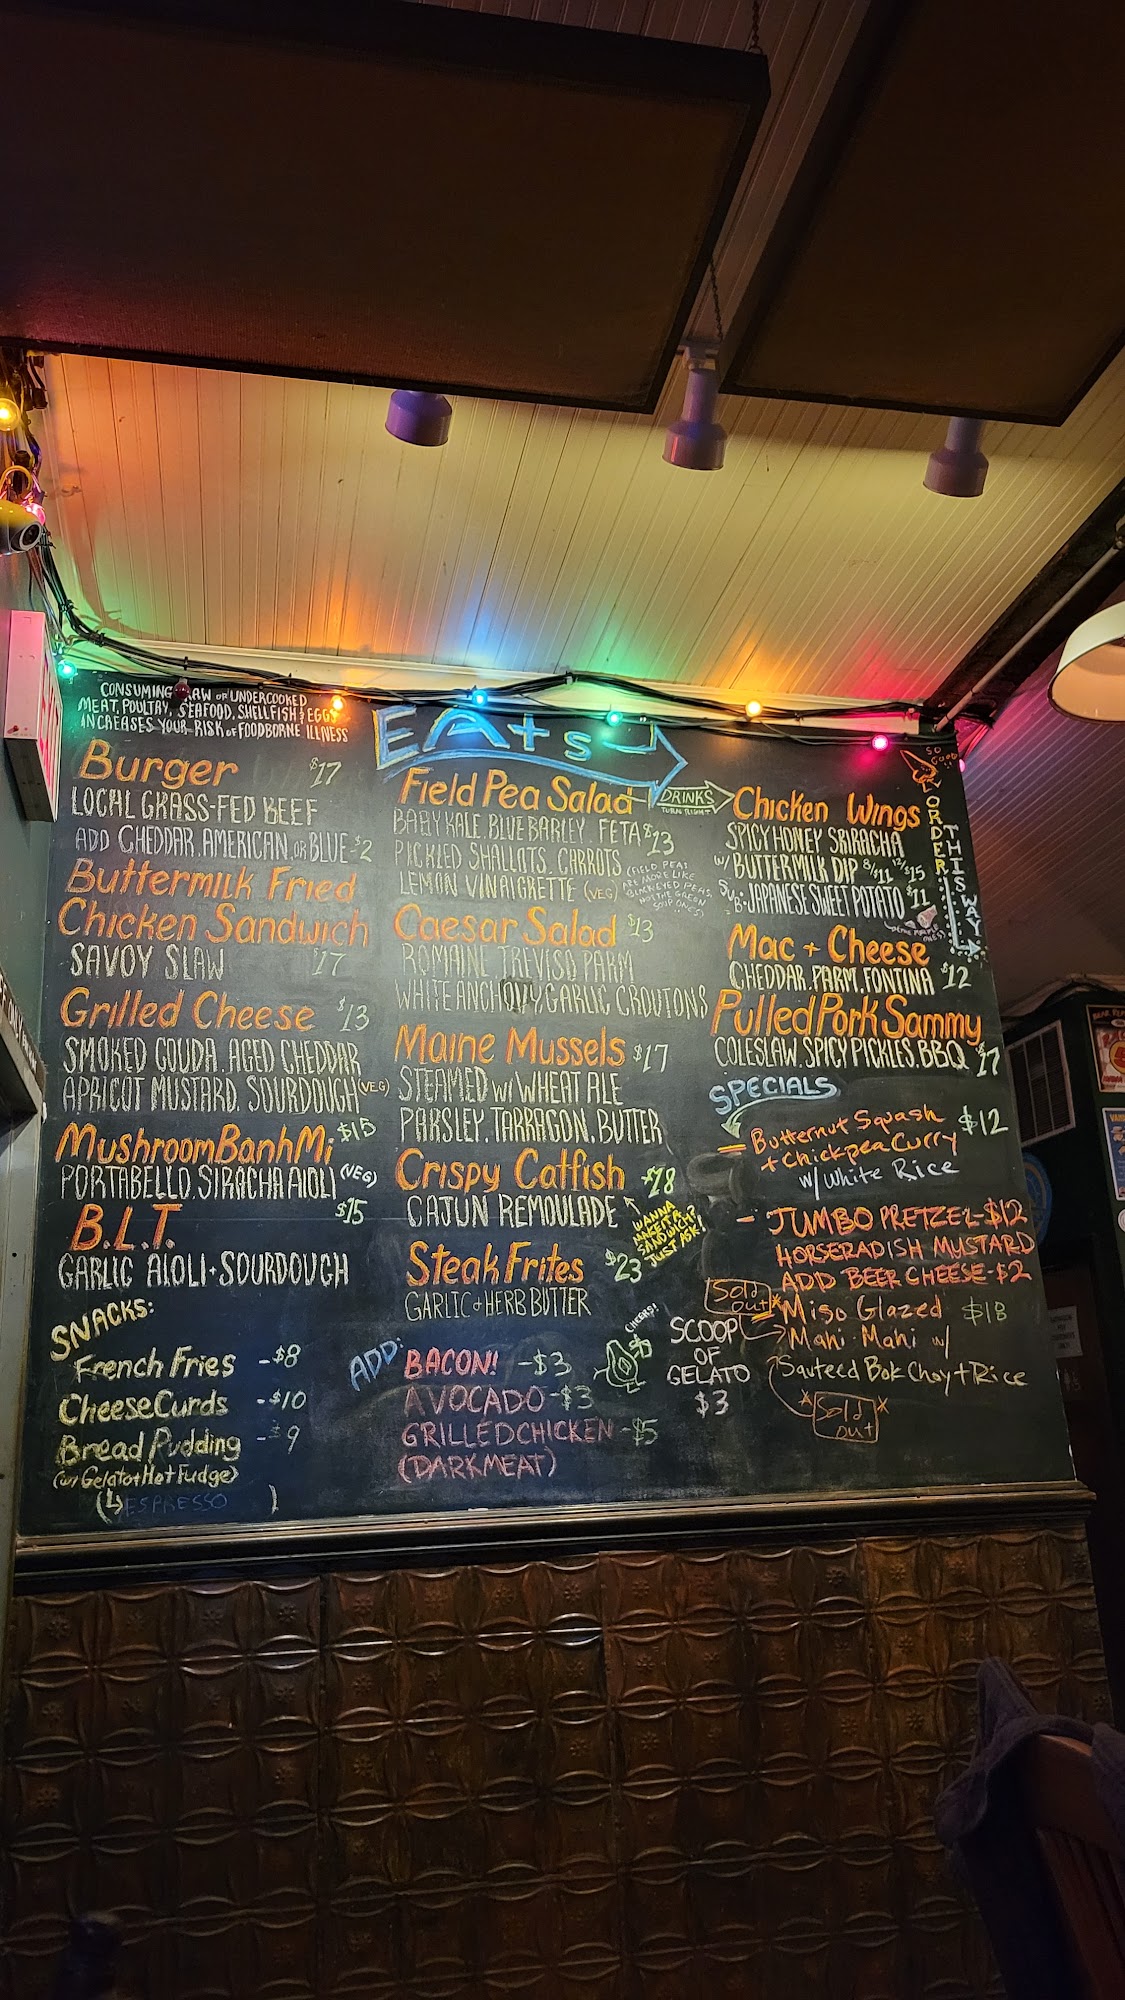 CONSUMING RAW or UNDERCOOKED
MEAT, POULTRY, SEAFOOD, SHELLFISH & EGGS
INCREASES YOUR RISK of FOODBORNE ILLNESS
Burger $17
LOCAL GRASS-FED BEEF
ADD CHEDDAR, AMERICAN, OR BLUE-$2
Buttermilk Fried
Chicken Sandwich
SAVOY SLAW $17
Grilled Cheese $13
SMOKED GOUDA. AGED CHEDDAR
APRICOT MUSTARD. SOURDOUGH (VEG)
Mushroom Banh Mi $15
PORTABELLO. SIRACHA AIOLI (VEG)
B.L.T. $15
GARLIC AIOLI • SOURDOUGH
SNACKS:
French Fries - $8
Cheese Curds - $10
Bread Pudding - $9
(w/ Gelato + Hot Fudge)
( ESPRESSO )
EAts
Field Pea Salad
BABY KALE. BLUE BARLEY. FETA $13
PICKLED SHALLOTS. CARROTS
LEMON VINAIGRETTE (VEG)
(FIELD PEAS
ARE MORE LIKE
BLACKEYED PEAS
NOT THE GREEN
SOUP ONES)
Caesar Salad $13
ROMAINE TREVISO PARM
WHITE ANCHOVY, GARLIC CROUTONS
Maine Mussels $17
STEAMED w/ WHEAT ALE
PARSLEY. TARRAGON. BUTTER
Crispy Catfish $18
CAJUN REMOULADE
WANNA
MAKE IT A
SANDWICH?
JUST ASK!
Steak Frites $23
GARLIC + HERB BUTTER
ADD:
BACON! - $3
AVOCADO - $3
GRILLED CHICKEN - $5
(DARK MEAT)
CHEERS!
SCOOP
OF
GELATO
$3
DRINKS
TURN RIGHT
Chicken Wings
SPICY HONEY SRIRACHA
w/ BUTTERMILK DIP 8/$11 12/$15
SUB • JAPANESE SWEET POTATO $11
Mac + Cheese
CHEDDAR. PARM. FONTINA $12
Pulled Pork Sammy
COLESLAW. SPICY PICKLES. BBQ $17
SO
GOOD
ORDER
THIS WAY
SPECIALS
Butternut Squash $12
+ Chickpea Curry
w/ White Rice
- JUMBO PRETZEL - $12
HORSERADISH MUSTARD
ADD BEER CHEESE - $2
Sold
out
Miso Glazed $18
Mahi Mahi w/
Sauteed Bok Choy + Rice
Sold
out